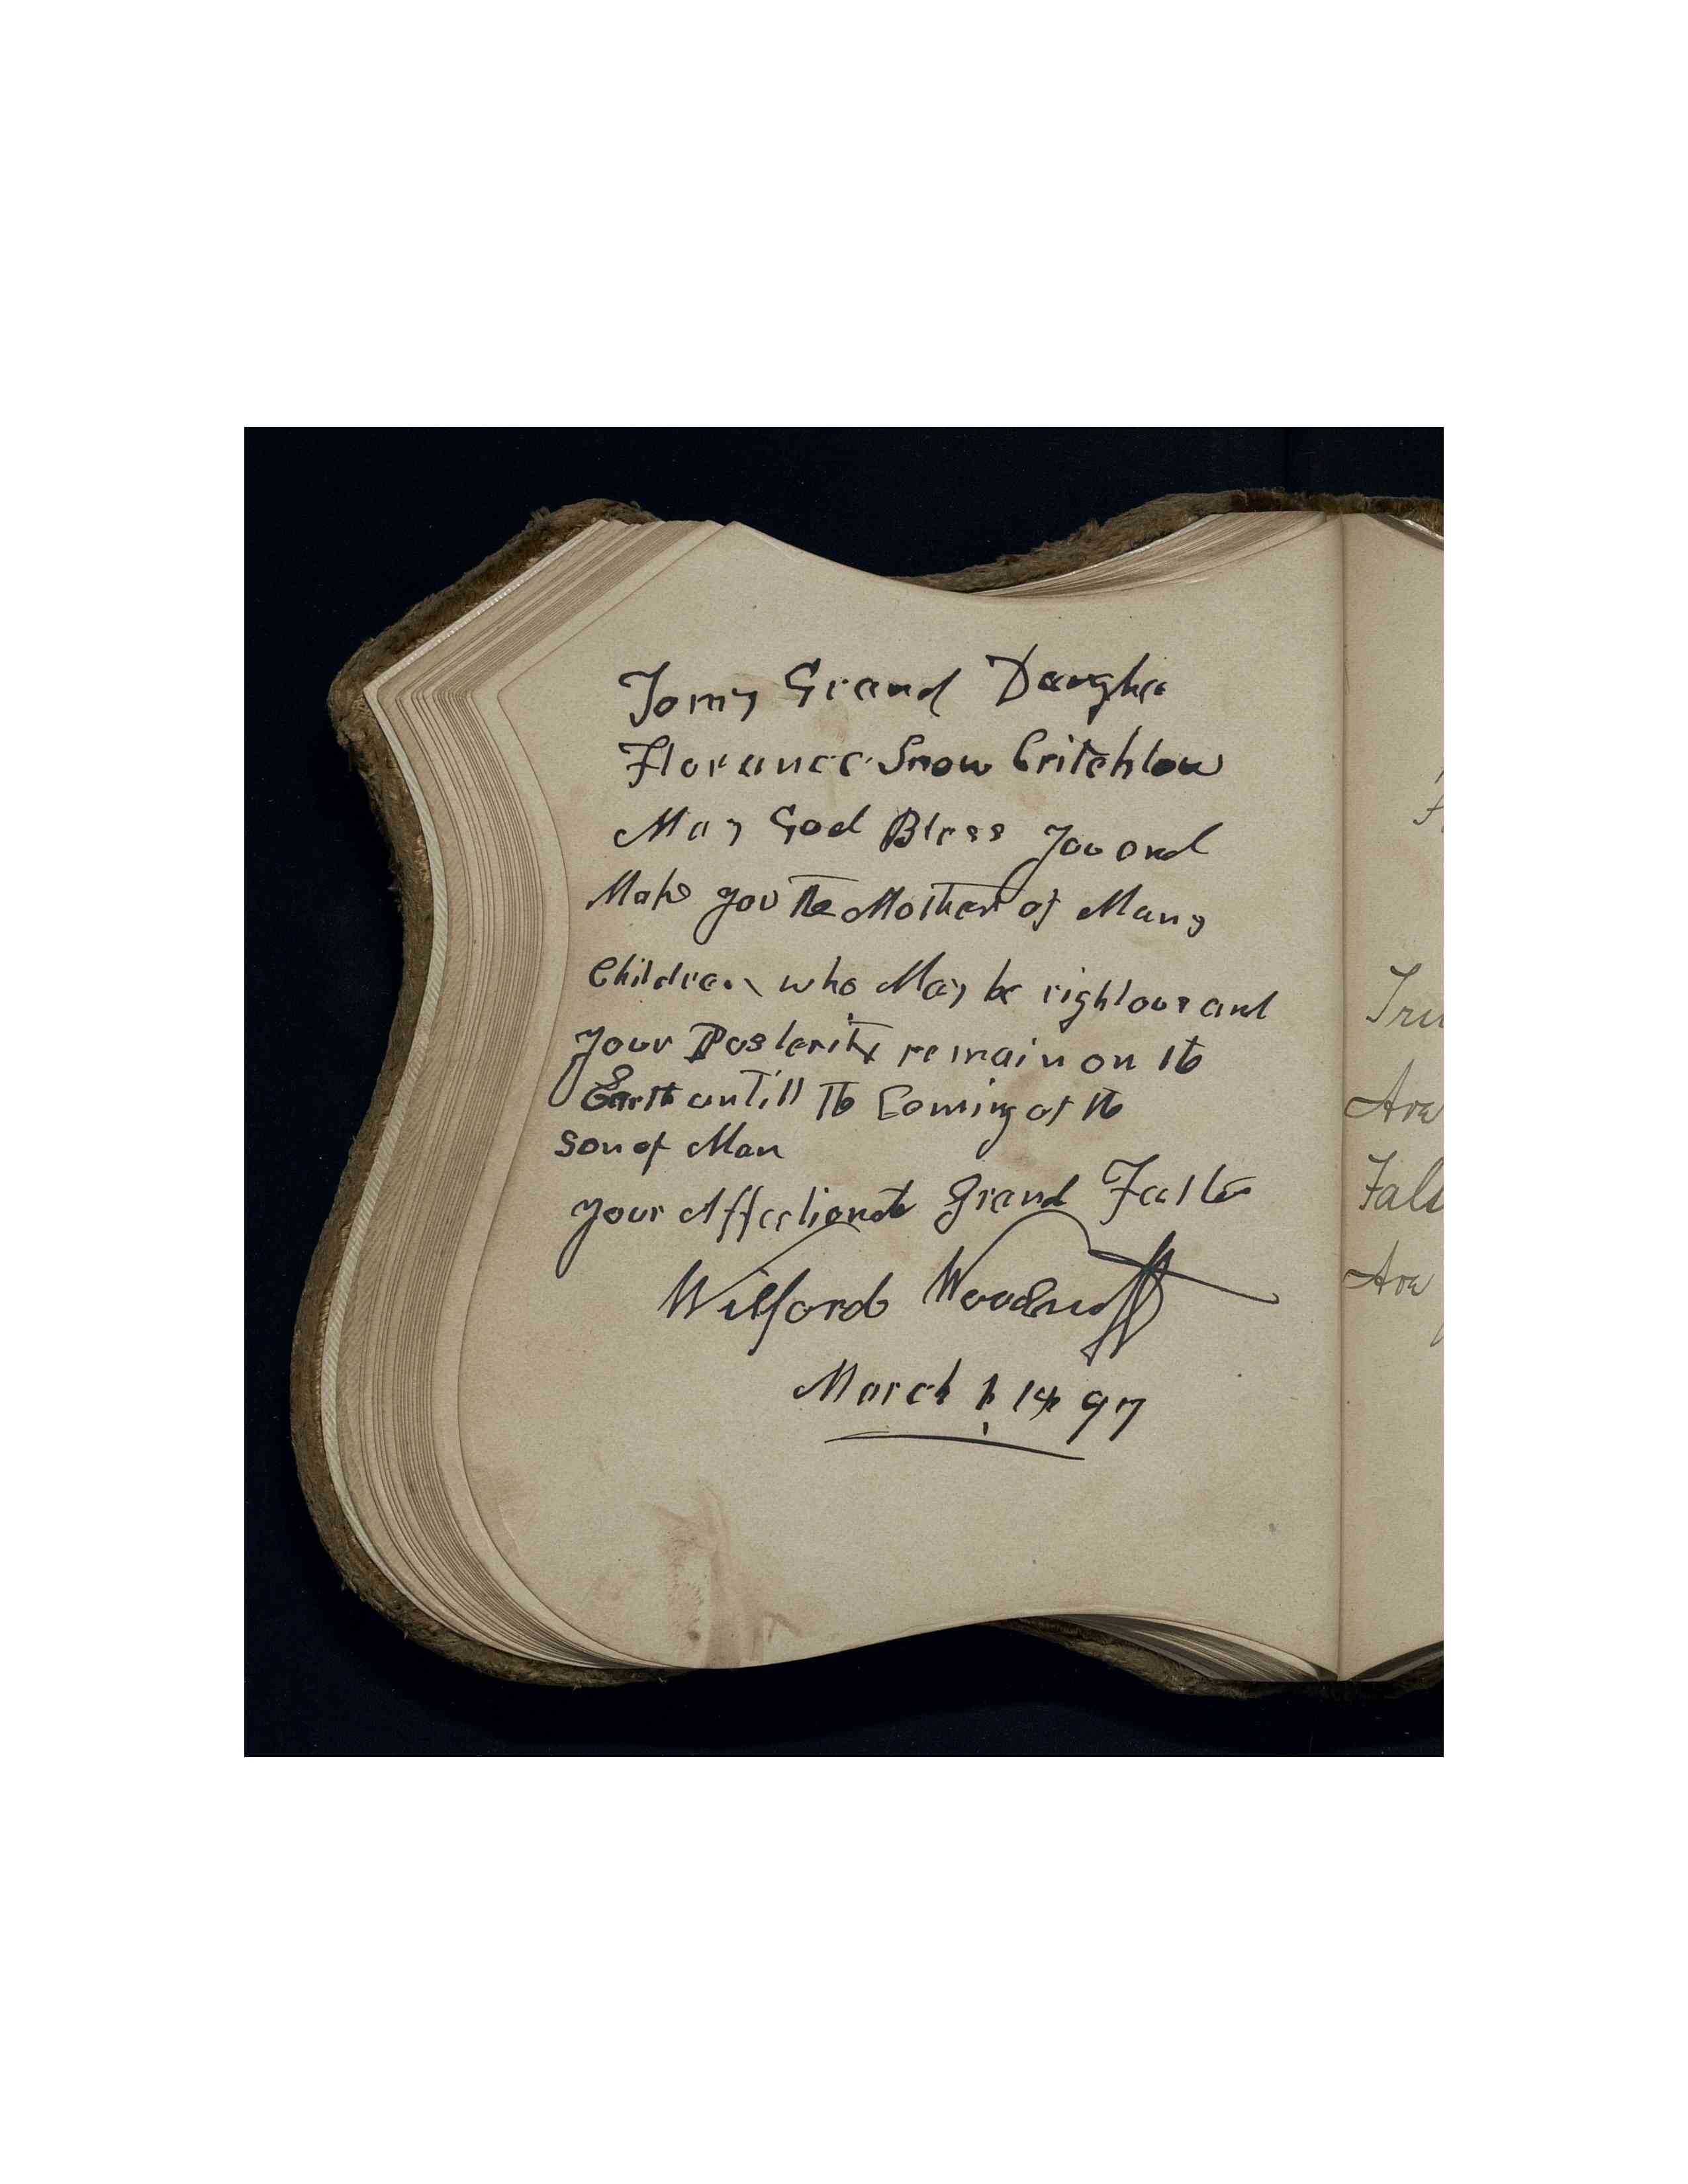 To my Grand Daughter
Florance Snow Critchlow
May God Bless You and
Make you the Mother of Many
Children who May be righteous and
your Posterity remain on the
Earth untill the Coming of the
Son of Man
your Affectionate Grand Father
Wilford Woodruff
March 97
Tru
Are
Fals
Are